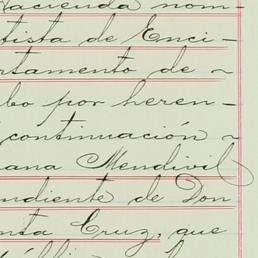 Hacienda nom-
tista de Enci-
rtamento de ~
bo por heren-
continuación ~
ana Mendivil
ndiente de Don
nta Cruz, que